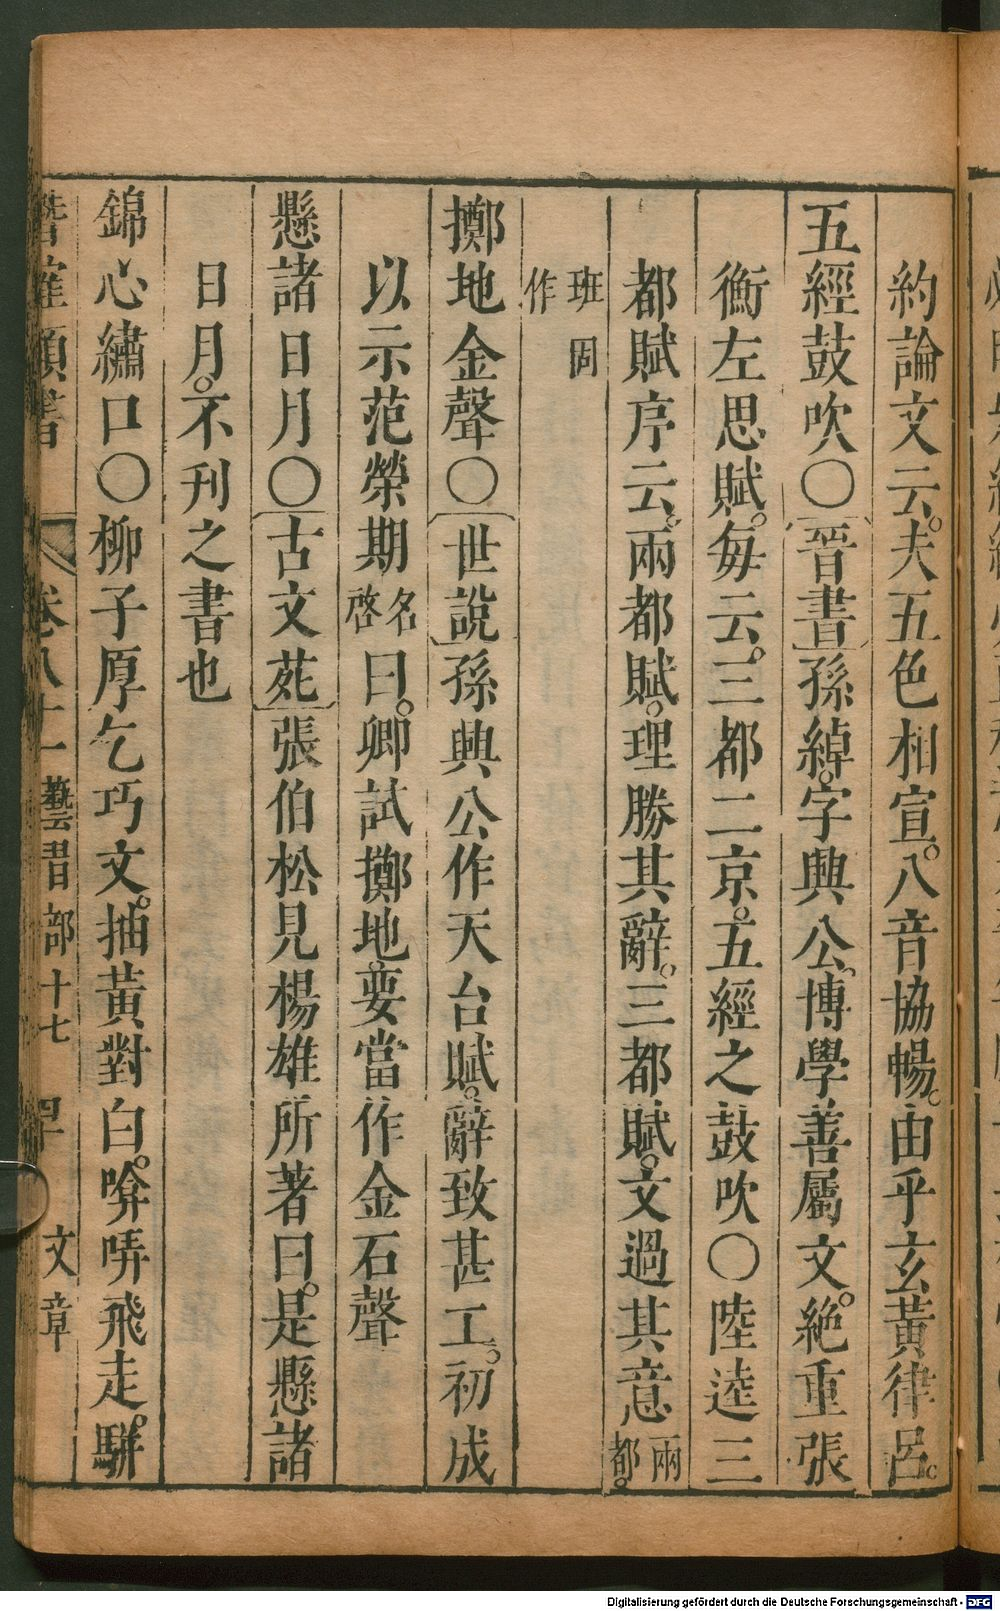 約論文云。夫五色相宣。八音協暢。由乎玄黃律呂。
五經鼓吹〇晉書孫綽。字興公。博學善屬文。絶重張
衡左思賦。每云。三都二京。五經之鼓吹〇陸逵三
都賦序云。兩都賦。理勝其辭。三都賦。文過其意兩都。
班固作
擲地金聲〇世說孫興公作天台賦。辭致甚工。初成
以示范榮期名啓曰。卿試擲地。要當作金石聲
懸諸日月〇古文苑張伯松見楊雄所著曰。是懸諸
日月。不刊之書也
錦心繡口〇柳子厚乞巧文。抽黃對白。唅哢飛走。駢
卷八十一 藝習部十七 文章
Digitalisierung gefördert durch die Deutsche Forschungsgemeinschaft - DFG